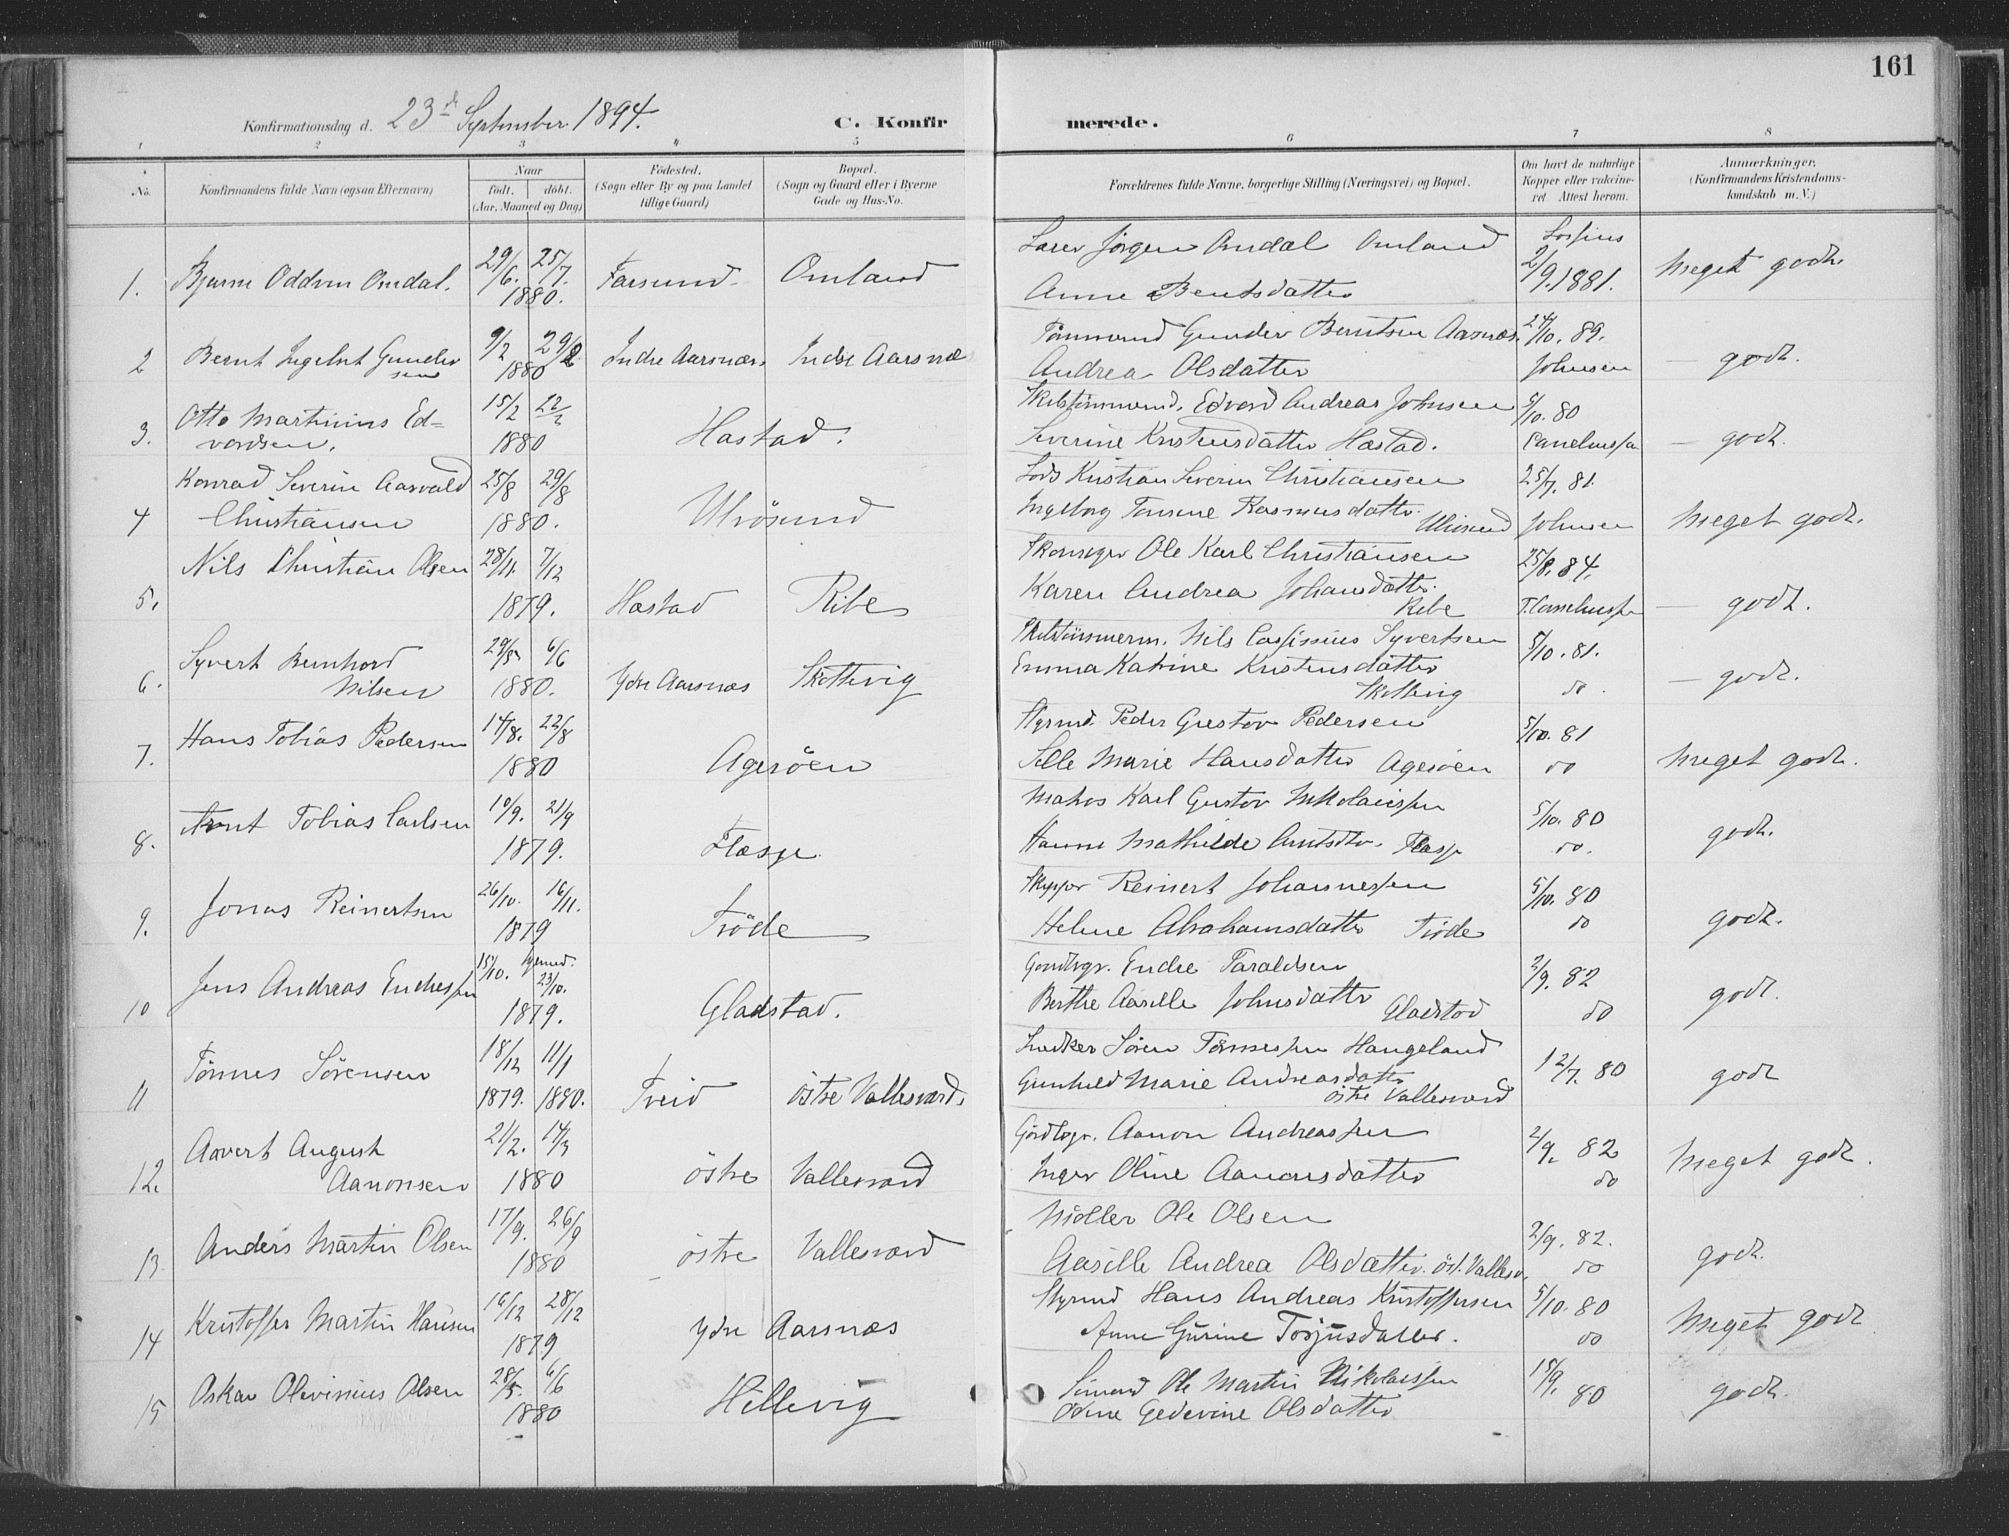 161
Konfirmationsdag d. 23d September 1894.
C. Konfirmerede.
1 2 3 4 5 6 7 8
No.
Konfirmandens fulde Navn (ogsaa Efternavn)
Naar
födt. döbt.
(Aar, Maaned og Dag)
Födested.
(Sogn eller By og paa Landet
tillige Gaard)
Bopæl.
(Sogn og Gaard eller i Byerne
Gade og Hus-No.
Forældrenes fulde Navne, borgerlige Stilling (Næringsvei) og Bopæl.
Om havt de naturlige
Kopper eller vakcine-
ret. Attest herom.
Anmærkninger.
(Konfirmandens Kristendoms-
kundskab m. V.)
1. Bjarne Oddvin Omdal. 29/6. 25/7. 1880. Farsund Omland
Lærer Jörgen Omdal Omland
Anne Berntsdatter
2/9. 1881. Meget godt.
2 Bernt Ingebret Gundersen 9/2 29/2 1880 Indre Aarsnæs Indre Aarsnæs
Tömmermd Gunder Berntsen Aarsnæs. 24/10. 89.
Andrea Olsdatter Johnsen – godt.
3. Otto Martinius Ed=
vardsen. 15/2 22/2 1880 Hastad.
Skibstömmermd. Edvard Andreas Johnsen 5/10. 80
Severine Kristensdatter Hastad. – godt.
4 Konrad Severin Aasvald
Christiansen 25/8 29/8 1880. Ulvösund
Lods Kristian Severin Christiansen 25/7. 81.
Ingeborg Tomine Rasmusdatter Ulvösund Johnsen Meget godt.
5. Nils Christian Olsen 28/11. 7/12 1879. Hastad Ribe
Ole Karl Christiansen 25/8. 84.
Karen Andrea Johansdatter
Ribe – godt.
6. Syvert Bernhard
Nilsen 29/5 6/6 1880. Ydre Aarsnæs Skottevig
Skibstömmerm. Nils Cassinius Syvertsen 5/10. 81.
Emma Katrine Kristensdatter
Skottevig do. – godt.
7. Hans Tobias Pedersen 14/8. 22/8 1880 Ageröen
Styrmd. Peder Gustav Pedersen 5/10. 81
Sille Marie Hansdatter Ageröen do Meget godt.
8. Arnt Tobias Carlsen 10/9. 21/9 1879. Flasge
Matros Karl Gustav Nikolaissen 5/10. 80
Hanne Mathilde Arntsdtr. do. godt.
9. Jonas Reinertsen 26/10. 16/11. 1879 Tröde
Skipper Reinert Johannessen 5/10. 80
Helene Abrahamsdatter Tröde do godt.
10 Jens Andreas Endressen 15/10. hjemmed. 23/10. 1879. Gladstad.
Gaardbgr. Endre Taraldsen 2/9. 82
Berthe Aasille Johnsdatter Gladstad do godt.
11 Tönnes Sörensen 18/12 11/1 1879. 1880. Treid östre Vallesværd.
Snedker Sören Tönnessen Haugeland 12/7. 80
Gunhild Marie Andreasdatter
östre Vallesværd godt
12. Aavert August
Aanonsen 21/2. 14/3 1880 östre Vallesværd
Gårdbgr. Aanon Andreassen 2/9. 82
Inger Oline Aanonsdatter do Meget godt.
13. Anders Martin Olsen 17/9. 26/9 1880 östre Vallesværd
Möller Ole Olsen 2/9. 82.
Aasille Andrea Olsdatter. öst. Vallesv. do godt.
14 Kristoffer Martin Hansen 16/12 28/12 1879 Ydre Aarsnæs
Styrmd Hans Andreas Kristoffersen 5/10. 80
Anne Gurine Torjusdatter. do Meget godt
15 Oskar Olevinius Olsen 28/5. 6/6 1880 Hillevig
Sömand Ole Martin Nikolaissen 15/9. 80
Gedevine Olsdatter godt.